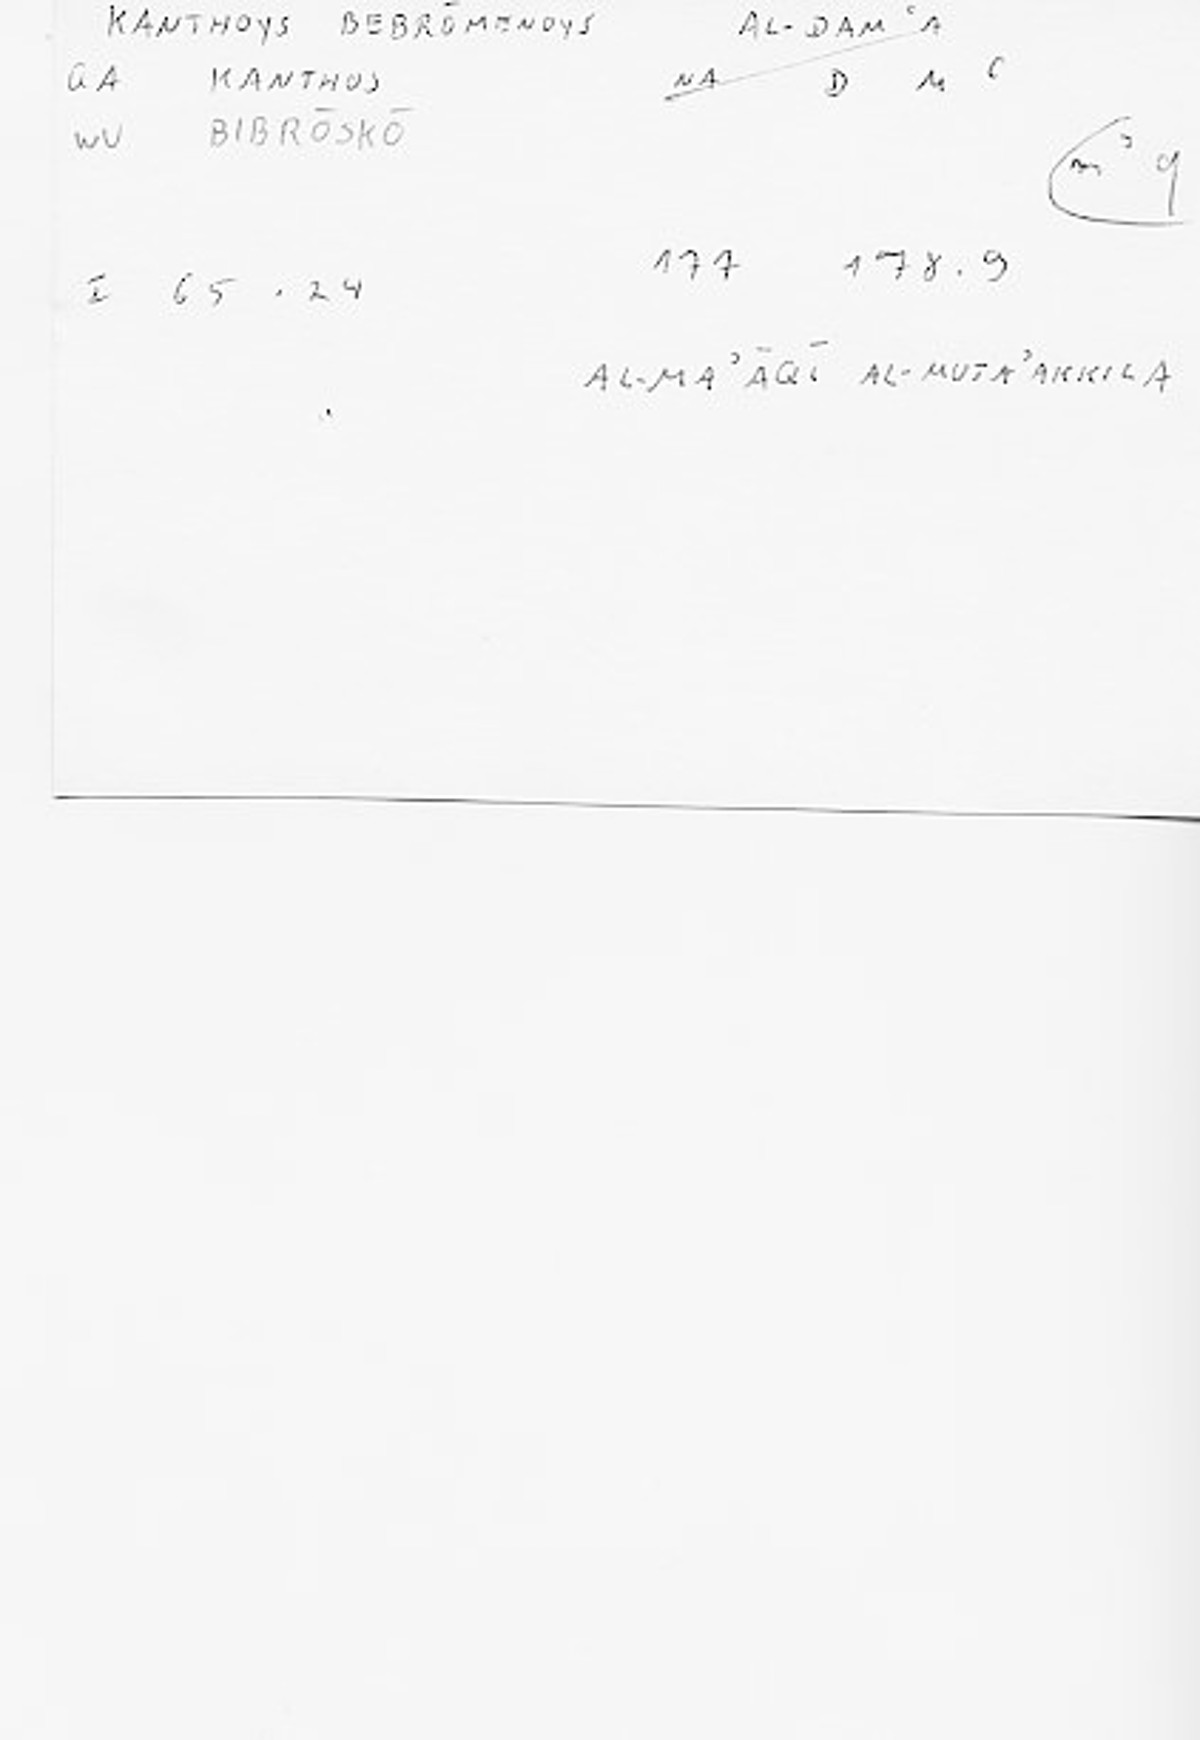 KANTHOYS BEBRŌMENOYS AL-DAMʿA
GA KANTHOS NA D M ʿ
WU BIBRŌSKŌ
mʾq
I 65.24 177 178.9
AL-MAʾĀQĪ AL-MUTAʾAKKILA